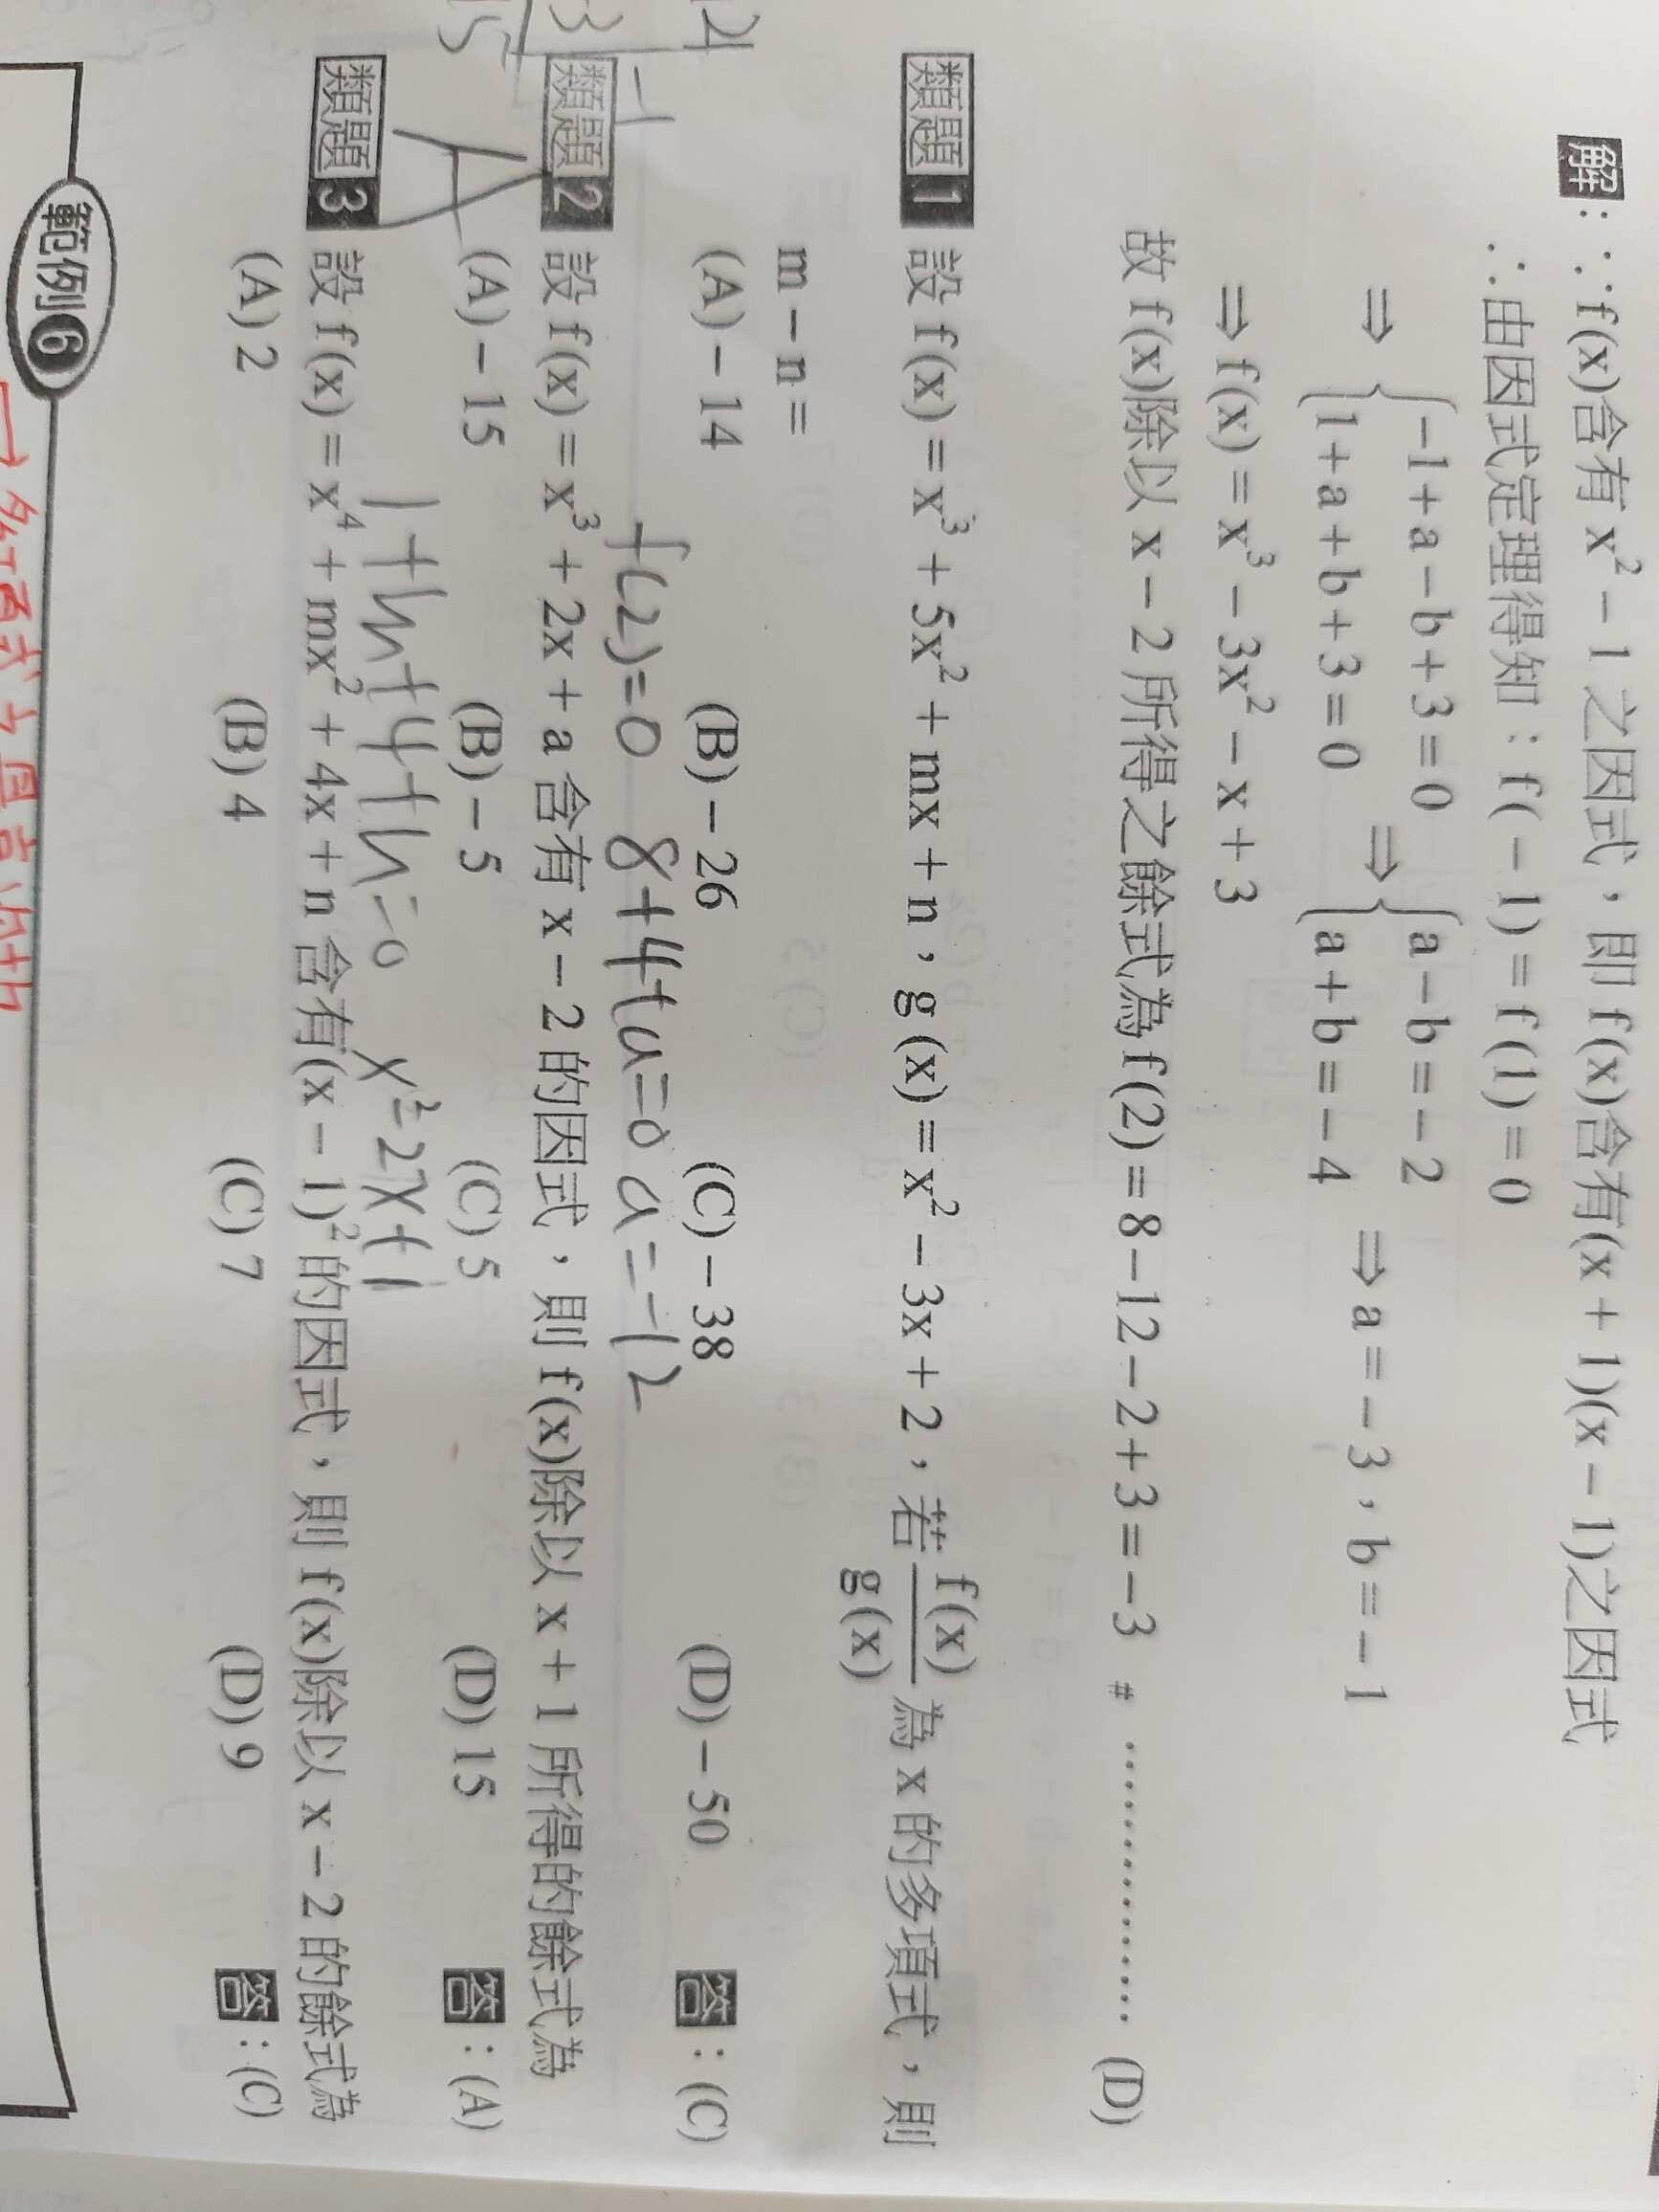 解：∵f(x)含有 x² − 1 之因式，即 f(x)含有(x + 1)(x − 1)之因式
∴由因式定理得知：f(−1) = f(1) = 0
⇒ { −1 + a − b + 3 = 0 ⇒ { a − b = −2 ⇒ a = −3，b = −1
1 + a + b + 3 = 0 a + b = −4
⇒ f(x) = x³ − 3x² − x + 3
故 f(x)除以 x − 2 所得之餘式為 f(2) = 8 − 12 − 2 + 3 = −3 # ………………… (D)
類題 1 設 f(x) = x³ + 5x² + mx + n，g(x) = x² − 3x + 2，若 f(x)/g(x) 為 x 的多項式，則
m − n =
(A) − 14 (B) − 26 (C) − 38 (D) − 50 答：(C)
f(2)=0 8+4+a=0 a=-12
類題 2 設 f(x) = x³ + 2x + a 含有 x − 2 的因式，則 f(x)除以 x + 1 所得的餘式為
(A) − 15 (B) − 5 (C) 5 (D) 15 答：(A)
A
1+m+4+n=0 x²-2x+1
類題 3 設 f(x) = x⁴ + mx² + 4x + n 含有(x − 1)²的因式，則 f(x)除以 x − 2 的餘式為
(A) 2 (B) 4 (C) 7 (D) 9 答：(C)
範例 6